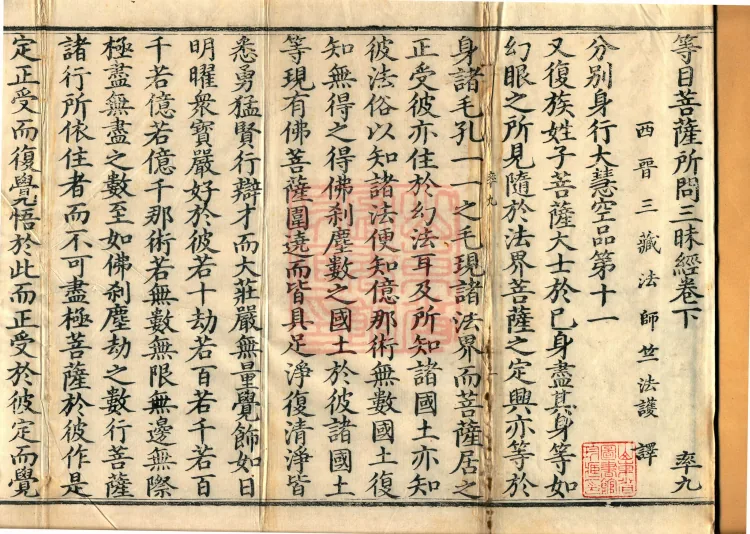 等目菩薩所問三昧經卷下
率九
西晉三藏法師竺法護譯
分別身行大慧空品第十一
又復族姓子菩薩大士於已身盡其身等如
幻眼之所見隨於法界菩薩之定興亦等於
率九
身諸毛孔一一之毛現諸法界而菩薩居之
正受彼亦住於幻法耳及所知諸國土亦知
彼法俗以知諸法便知億那術無數國土復
知無得之得佛剎塵數之國土於彼諸國土
等現有佛菩薩圍遶而皆具足淨復清淨皆
悉勇猛賢行辯才而大莊嚴無量覺飾如日
明曜眾寶嚴好於彼若十劫若百若千若百
千若億若億千那術若無數無限無邊無際
極盡無盡之數至如佛剎塵劫之數行菩薩
諸行所依住者而不可盡極菩薩於彼作是
定正受而復覺悟於此而正受於彼定而覺